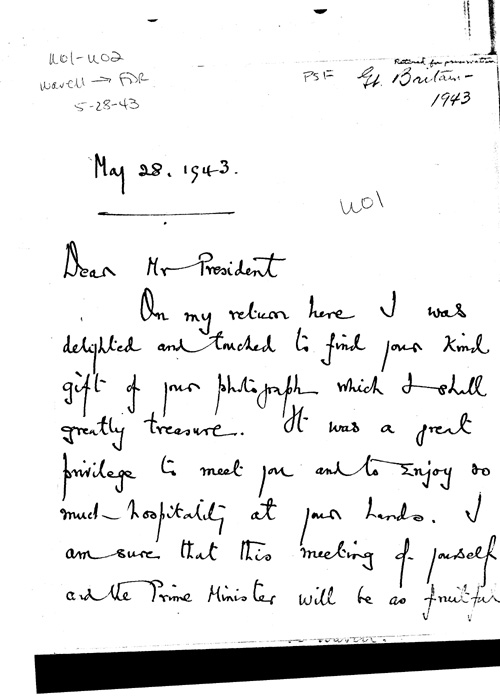 Retired for preservation
PSF Gt. Britain-
1943
u01-u02
wavell → FDR
5-28-43
May 28. 1943.
u01
Dear Mr President
On my return here I was
delighted and touched to find your kind
gift of your photograph which I shall
greatly treasure. It was a great
privilege to meet you and to enjoy so
much hospitality at your hands. I
am sure that this meeting of yourself
and the Prime Minister will be as fruitful